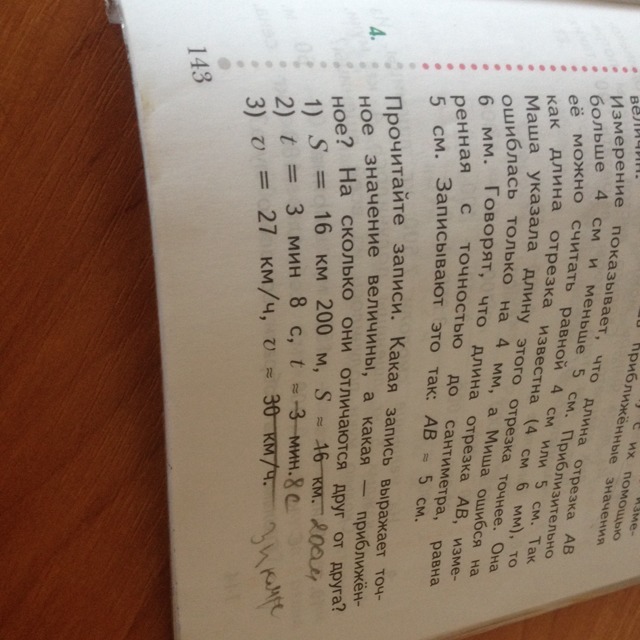 величин.
Измерение показывает, что длина отрезка AB
больше 4 см и меньше 5 см. Приблизительно
её можно считать равной 4 см или 5 см. Так
как длина отрезка известна (4 см 6 мм), то
Маша указала длину этого отрезка точнее. Она
ошиблась только на 4 мм, а Миша ошибся на
6 мм. Говорят, что длина отрезка AB, изме-
ренная с точностью до сантиметра, равна
5 см. Записывают это так: AB ≈ 5 см.
4. Прочитайте записи. Какая запись выражает точ-
ное значение величины, а какая — приближён-
ное? На сколько они отличаются друг от друга?
1) S = 16 км 200 м, S ≈ 16 км. 200м
2) t = 3 мин 8 с, t ≈ 3 мин. 8 с
3) v = 27 км/ч, v ≈ 30 км/ч.
143